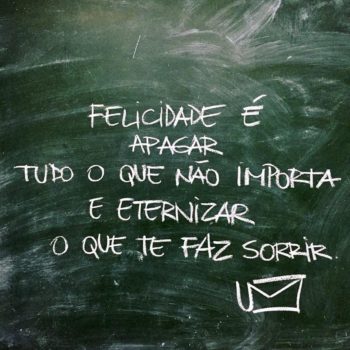 FELICIDADE É
APAGAR
TUDO O QUE NÃO IMPORTA
E ETERNIZAR
O QUE TE FAZ SORRIR.
U